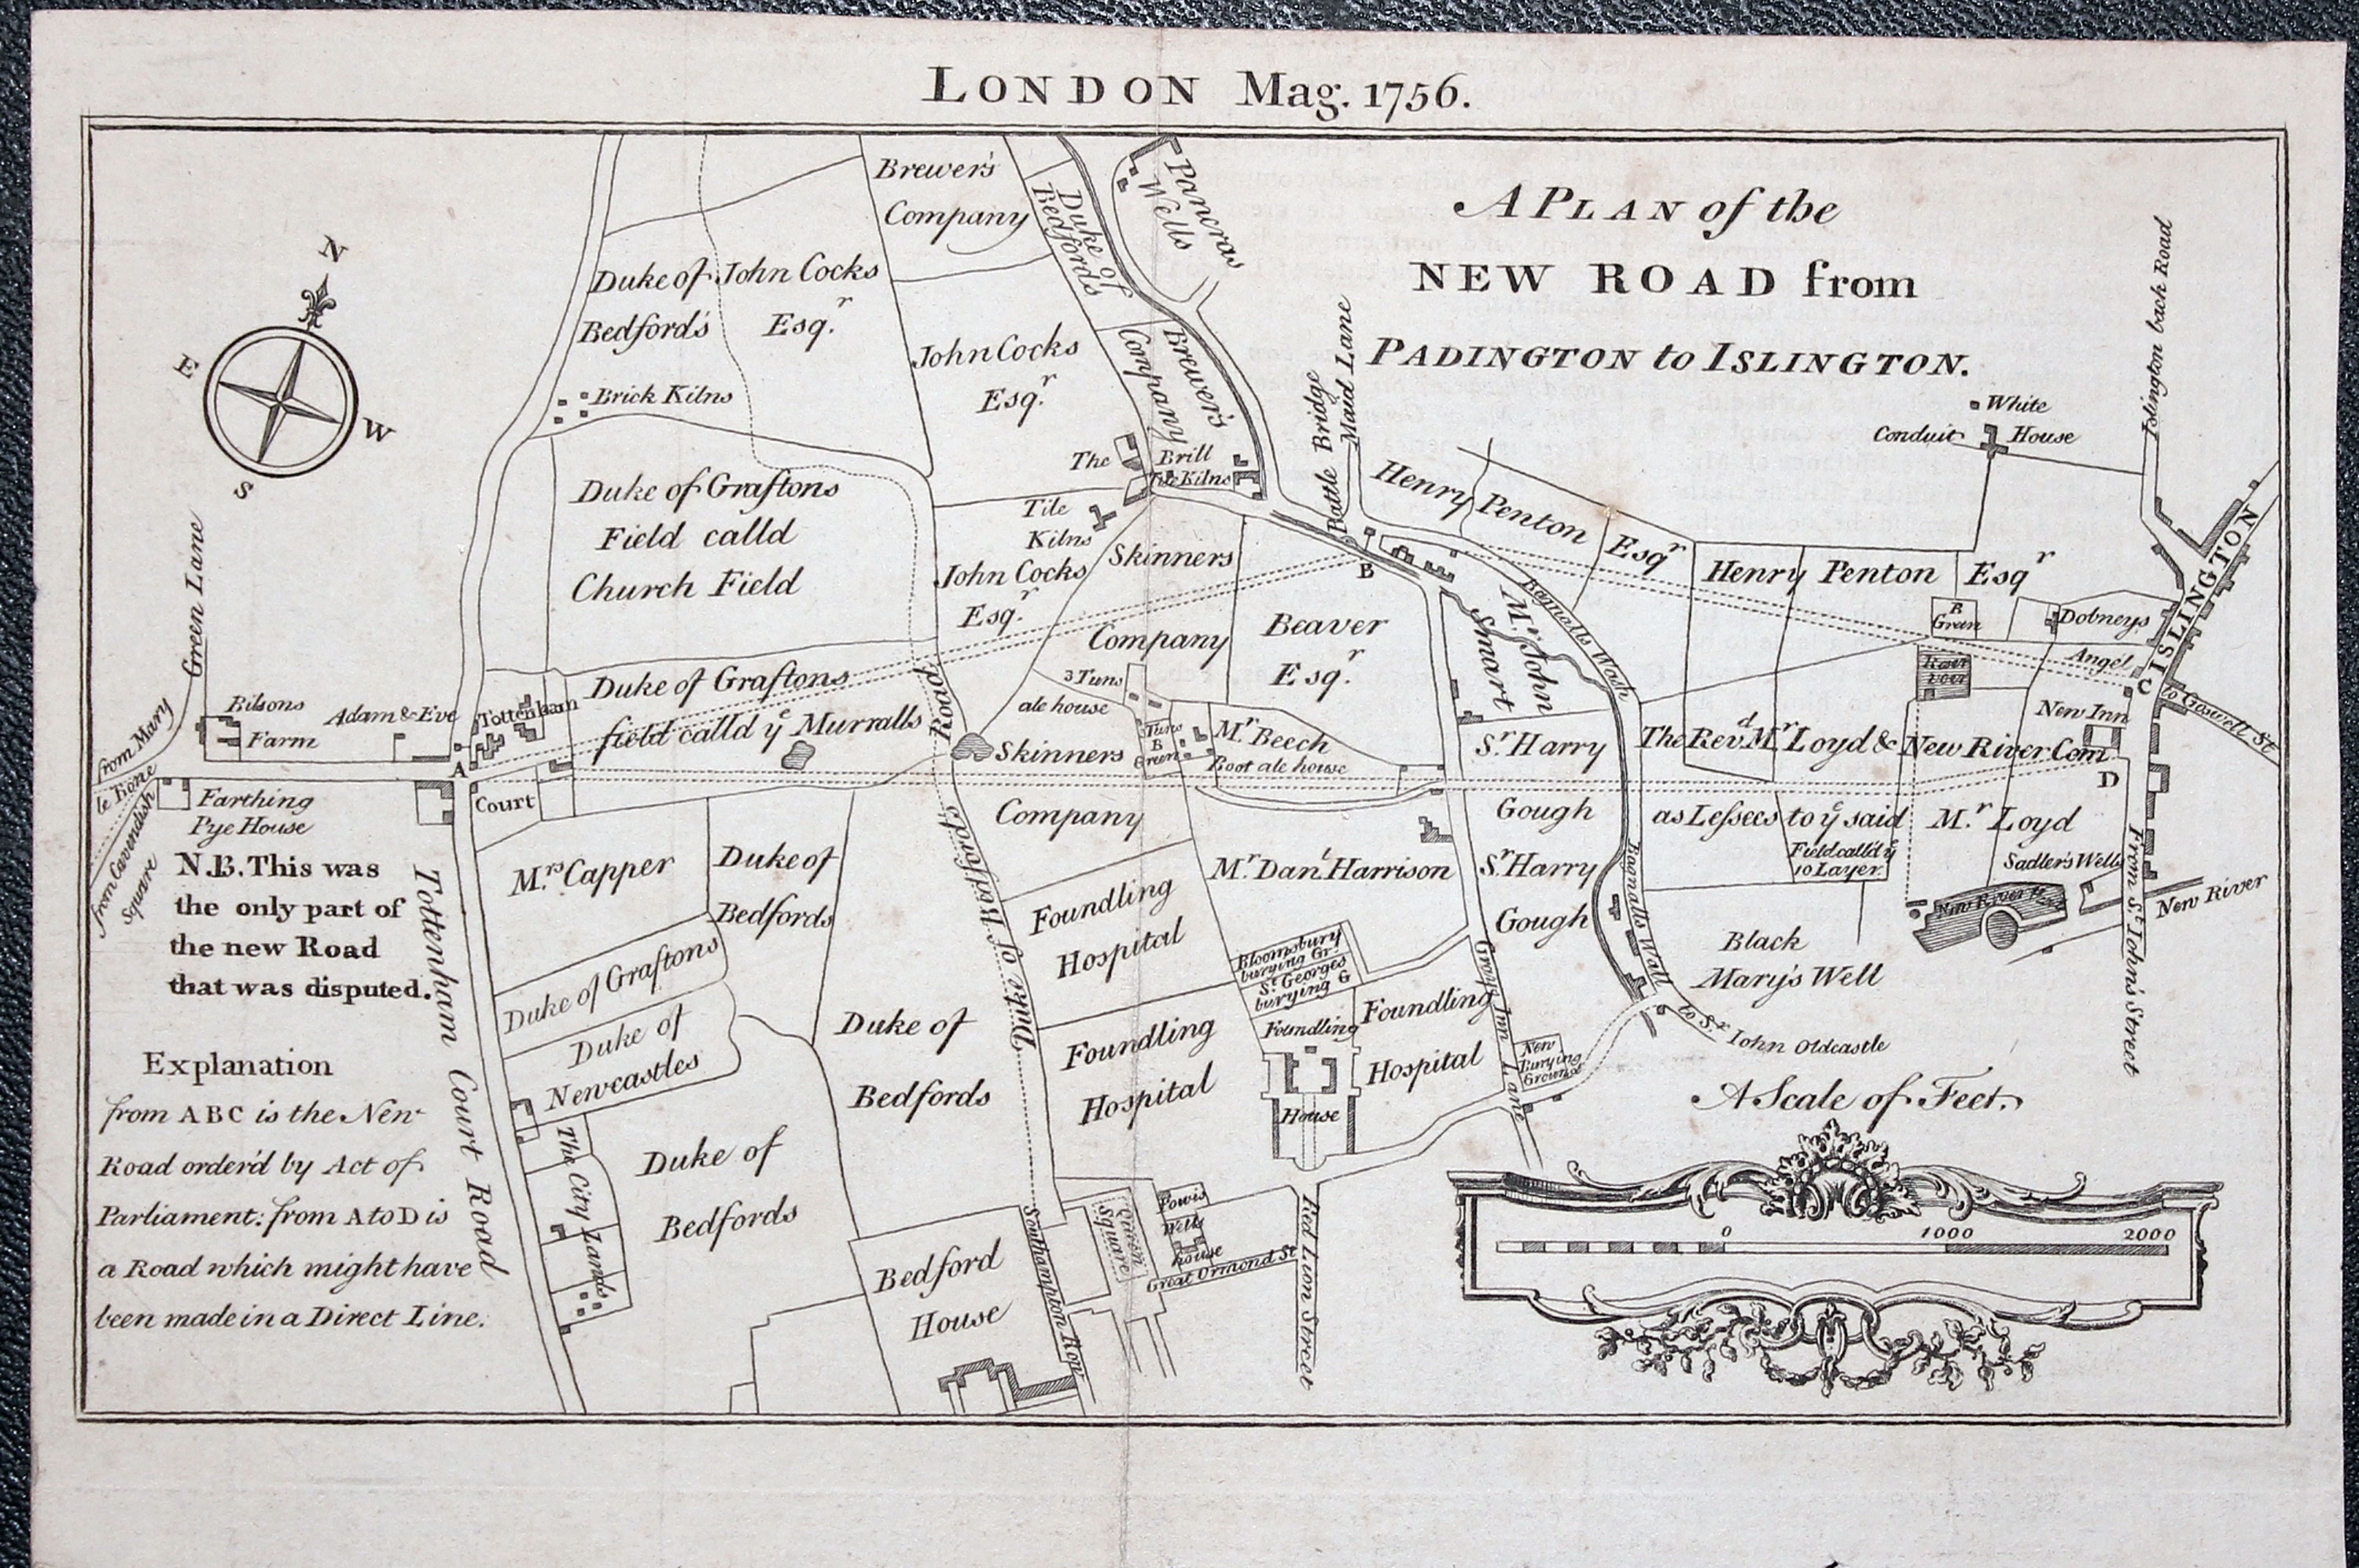 LONDON Mag. 1756.
A PLAN of the
NEW ROAD from
PADINGTON to ISLINGTON.
N
E
W
S
Brewer's
Company
Duke of
Bedfords
Pancras
Wells
Duke of
Bedford's
John Cocks
Esq.r
John Cocks
Esq.r
Brewer's
Company
Brick Kilns
The Brill
Tile Kilns
Battle Bridge
Maid Lane
Islington back Road
White
Conduit House
Duke of Graftons
Field calld
Church Field
Tile
Kilns
John Cocks
Esq.r
Skinners
Company
Beaver
Esq.r
B
Henry Penton Esqr
Henry Penton Esqr
Bagnalls Wash
Mr. John
Smart
B
Green
Dobneys
ISLINGTON
Angel
C
to Goswell St
Green Lane
from Mary
le Bone
from Cavendish
Square
Bilsons
Farm
Adam & Eve
Tottenham
Court
A
Farthing
Pye House
Duke of Graftons
field calld ye Murralls
Duke of Bedfords Road
3 Tuns
ale house
Tuns
B
Green
Mr. Beech
Boot ale house
Skinners
Company
Sr. Harry
Gough
Sr. Harry
Gough
The Revd. Mr. Loyd & New River Com
as Lessees to ye said Mr. Loyd
Field call'd ye
10 Layer
New Inn
D
Sadler's Wells
New River
From St. John's Street
N.B. This was
the only part of
the new Road
that was disputed.
Tottenham Court Road
Mrs. Capper
Duke of
Bedfords
Duke of Graftons
Duke of
Newcastles
The City Lands
Duke of
Bedfords
Duke of
Bedfords
Foundling
Hospital
Foundling
Hospital
Mr. Danl. Harrison
Bloomsbury
burying Gr.
St. Georges
burying G
Foundling
House
Foundling
Hospital
Grays Inn Lane
New
Burying
Ground
Bagnalls Wall
Black
Mary's Well
to Sr. John Oldcastle
Bedford
House
Southampton Row
Queen
Square
Powis
Wells
house
Great Ormond St
Red Lion Street
Explanation
from ABC is the New
Road order'd by Act of
Parliament: from A to D is
a Road which might have
been made in a Direct Line.
A Scale of Feet.
0 1000 2000